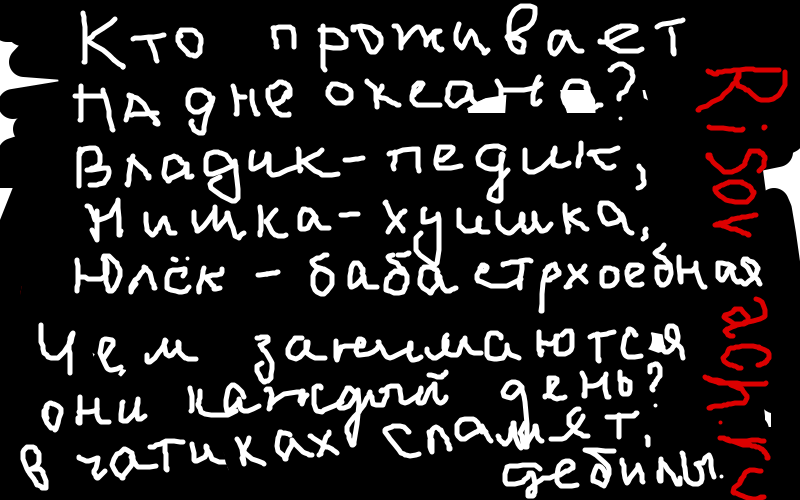 Кто проживает
на дне океана?
Владик - педик,
Нишка - хуишка,
Юлёк - баба страхоебная
Чем занимаются
они каждый день?
в чатиках спамят,
дебилы.
Risovach.ru